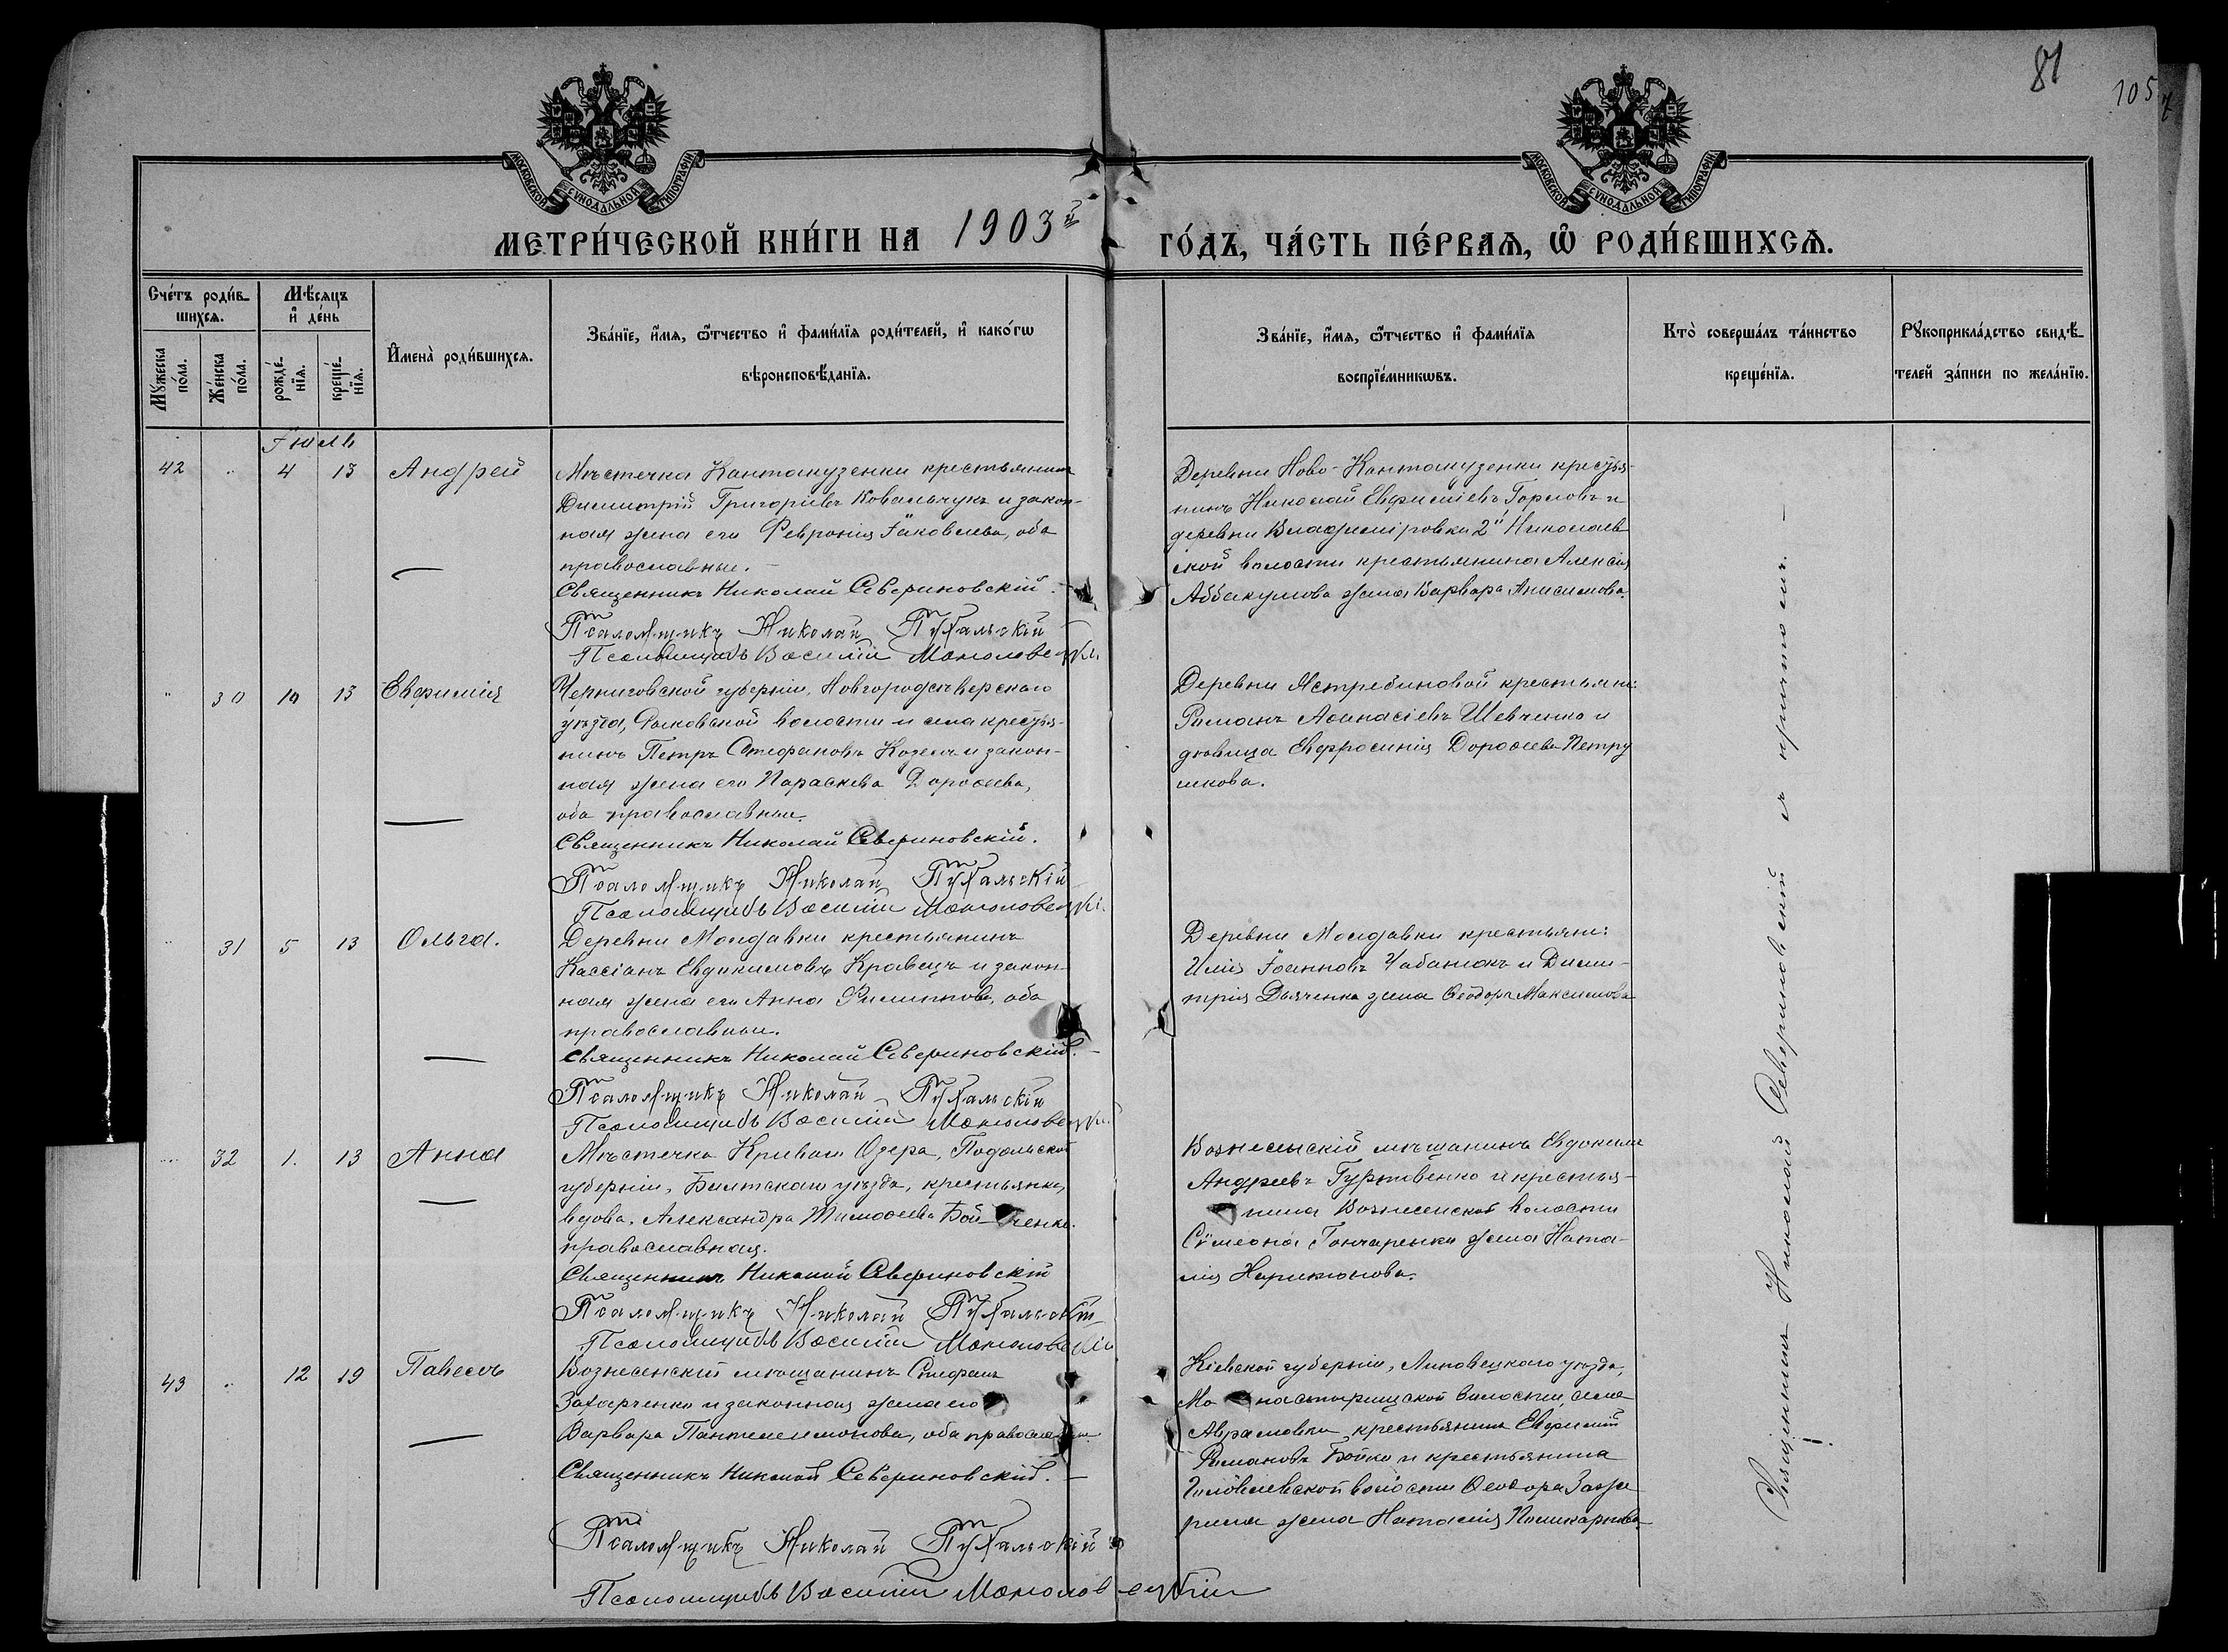 81
105
МОСКОВСКОЙ СУНОДАЛЬНОЙ ТИПОГРАФІИ
МОСКОВСКОЙ СУНОДАЛЬНОЙ ТИПОГРАФІИ
МЕТРИ́ЧЕСКОЙ КНИ́ГИ НА 1903й ГО́ДЪ, ЧА́СТЬ ПЕ́РВАѦ, Ѡ РОДИ́ВШИХСѦ.
Сче́тъ роди́в-
шихсѧ.
Мꙋ́жеска по́ла.
Же́нска по́ла.
Мѣ́сѧцъ и҆ де́нь
рожде́-нїѧ.
креще́-нїѧ.
И҆мена̀ роди́вшихсѧ.
Зва́нїе, и҆́мѧ, ѻ҆́тчество и҆ фами́лїѧ роди́телей, и҆ како́гѡ
вѣроисповѣ́данїѧ.
Зва́нїе, и҆́мѧ, ѻ҆́тчество и҆ фами́лїѧ
воспрїе́мникѡвъ.
Кто̀ соверша́лъ та́инство
креще́нїѧ.
Рꙋкоприкла́дство свидѣ́-
телей за́писи по жела́нїю.
Іюль
42 " 4 13 Андрей
Мѣстечка Кантакузенки крестьянинъ
Димитрій Григоріевъ Ковальчукъ и закон-
ная жена его Февронія Іаковлева, оба
православные.
Священникъ Николай Севериновскій.
Псаломщикъ Николай Пухальскій
Псаломщикъ Василій
Деревни Ново-Кантакузенки крестья-
нинъ Николай Евфиміевъ Горловъ и
деревни Владиміровки 2й Николаев
ской волости крестьянина Алексія
Аввакумова жена Варвара Анисимова.
" 30 10 13 Евфимія
Черниговской губерніи, Новгородсѣверскаго
уѣзда, волости и села крестья-
нинъ Петръ Стефановъ Козелъ и закон-
ная жена его Параскева Дороѳеева,
оба православные.
Священникъ Николай Севериновскій.
Псаломщикъ Николай Пухальскій
Псаломщикъ Василій
Деревни Ястребиновой крестьяни:
Романъ Аѳанасіевъ Шевченко и
дѣвица Евфросинія Дороѳеева Петру
шкова.
" 31 5 13 Ольга.
Деревни Молдавки крестьянинъ
Кассіанъ Евдокимовъ Кравецъ и закон-
ная жена его Анна Филиппова, оба
православные.
Священникъ Николай Севериновскій.
Псаломщикъ Николай Пухальскій
Псаломщикъ Василій
Деревни Молдавки крестьяни:
Илія Іоанновъ Чабанюкъ и Дими-
трія Дьяченка жена Ѳеодора Максимова
" 32 1. 13 Анна
Мѣстечка Криваго Озера, Подольской
губерніи, Балтскаго уѣзда, крестьянка,
вдова, Александра Тимоѳеева Бойченко.
православная.
Священникъ Николай Севериновскій
Псаломщикъ Николай Пухальскій
Псаломщикъ Василій
Вознесенскій мѣщанинъ Евдокимъ
Андреевъ Гуртовенко и крестья-
нина Вознесенской волости
Сѵмеона Гончаренка жена Ната-
лія Харитонова.
43 " 12 19 Павелъ
Вознесенскій мѣщанинъ Стефанъ
Захарченко и законная жена его
Варвара Пантелеимонова, оба православные
Священникъ Николай Севериновскій.
Псаломщикъ Николай Пухальскій
Псаломщикъ Василій
Кіевской губерніи, Липовецкаго уѣзда,
Монастырищской волости, села
Аврамовки крестьянинъ Евфимій
Романовъ Бойко и крестьянина
волости Ѳеодора
жена Наталія Поликарпова
Священникъ Николай Севериновскій съ причтомъ.